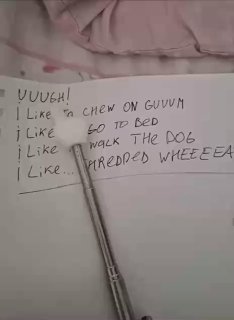 UUUGH!
I LikE To CHEW ON GUUUM
i LikE GO TO BED
i LikE WALK THE DOG
I LikE... SHREDDED WHEEEEA